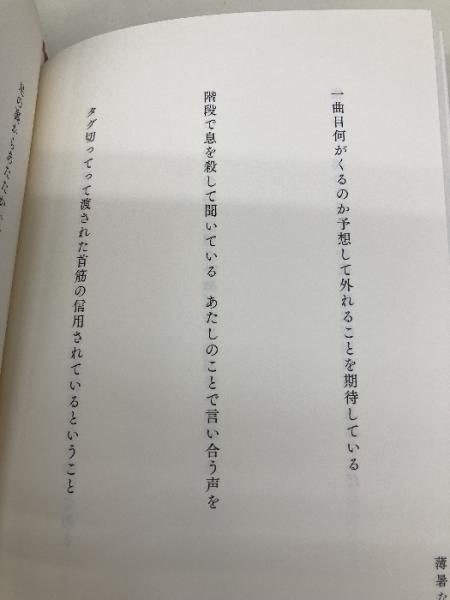 一曲目何がくるのか予想して外れることを期待している
階段で息を殺して聞いている　あたしのことで言い合う声を
タグ切ってって渡された首筋の信用されているということ
薄暑な